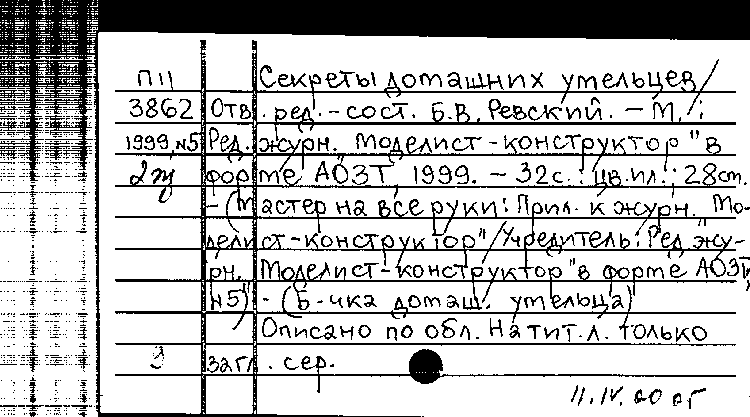 П11 Секреты домашних умельцев /
3862 Отв. ред.-сост. Б.В. Ревский. - М.:
1999,N5 Ред. журн. Моделист-конструктор" в
2 форме АОЗТ, 1999. - 32с.: цв.ил.; 28см.
-(Мастер на все руки: Прил. к журн. "Мо-
делист-конструктор" / Учредитель: Ред. жу-
рн. Моделист-конструктор" в форме АОЗТ,
N5) - (Б-чка домаш. умельца)
Описано по обл. На тит.л. только
загл. сер.